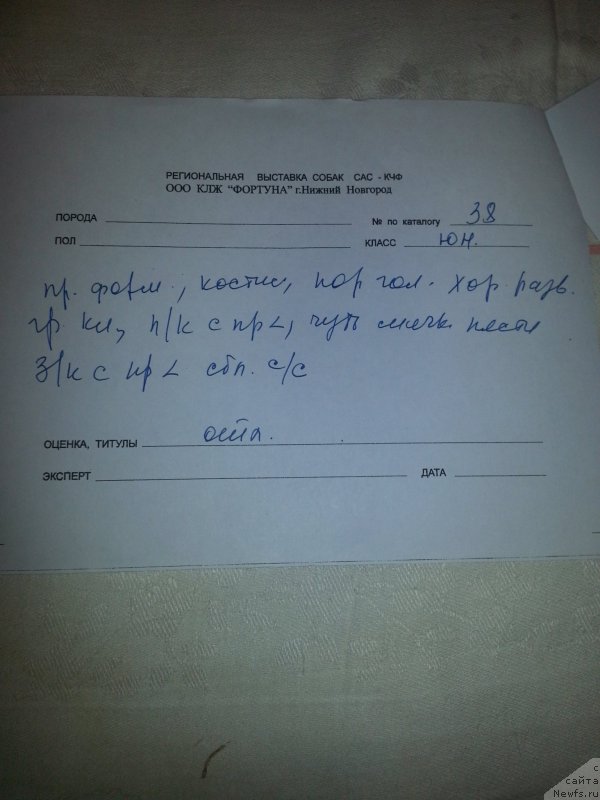 РЕГИОНАЛЬНАЯ ВЫСТАВКА СОБАК САС - КЧФ
ООО КЛЖ “ФОРТУНА” г.Нижний Новгород
ПОРОДА № по каталогу 38
ПОЛ КЛАСС юн.
пр. форм., костис, пор гол. хор. разв.
гр кл, п/к с пр<, чуть мягк пясти
З/к с пр< сбп. с/с
ОЦЕНКА, ТИТУЛЫ
ЭКСПЕРТ ДАТА
с
сайта
Newfs.ru